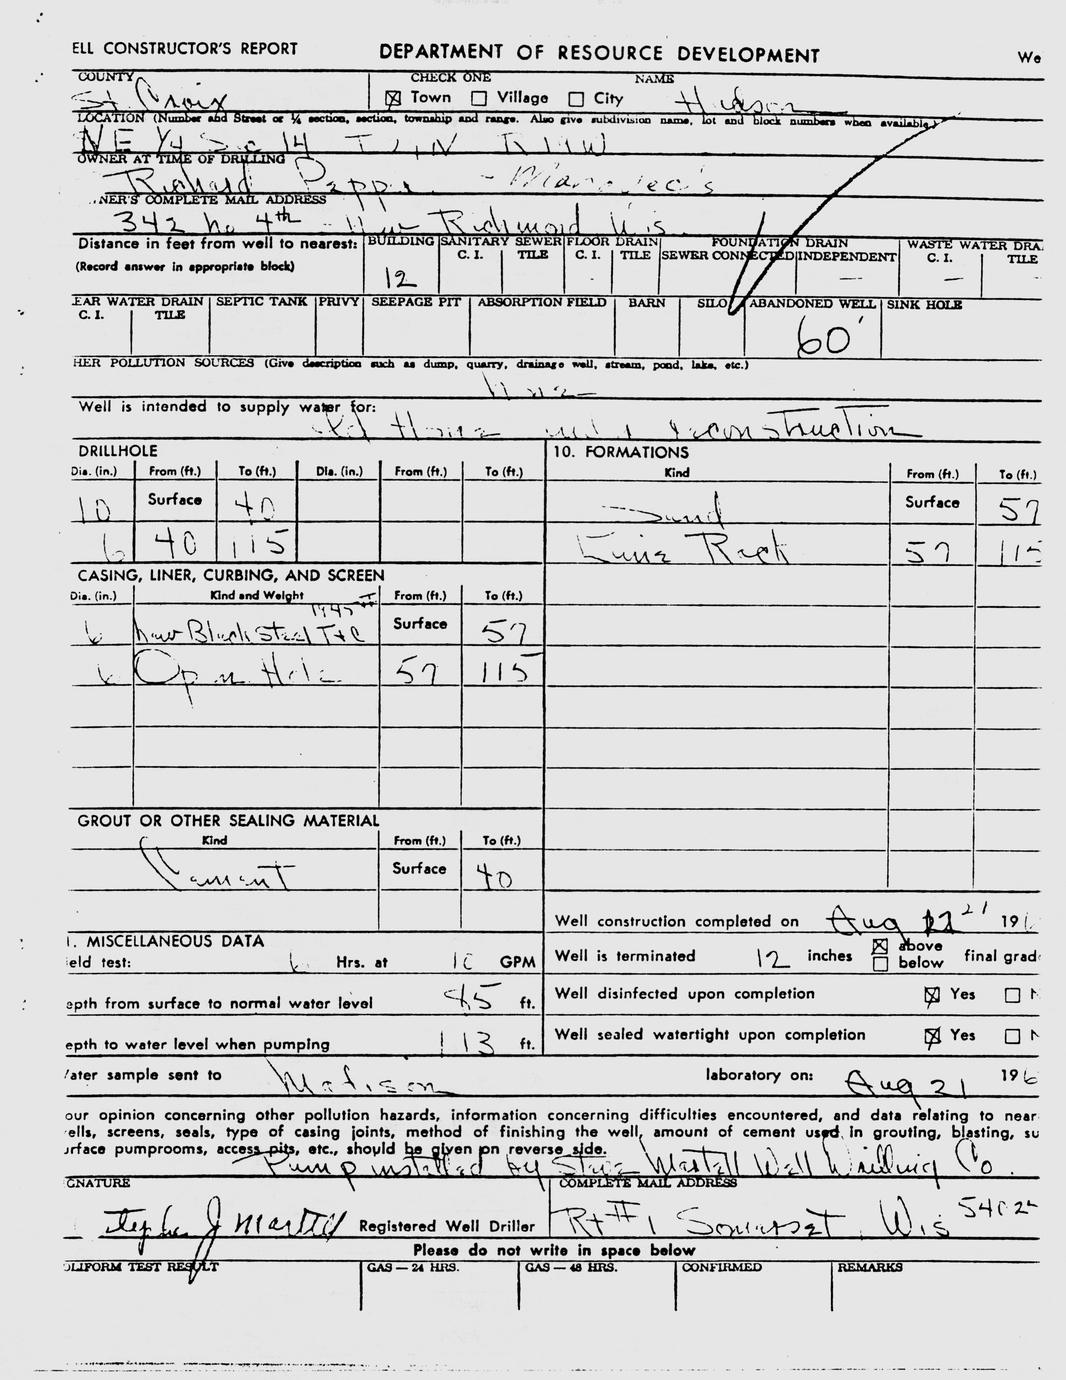 ELL CONSTRUCTOR'S REPORT DEPARTMENT OF RESOURCE DEVELOPMENT We
COUNTY CHECK ONE NAME
St Croix Town Village City Hudson
LOCATION (Number and Street or ¼ section, section, township and range. Also give subdivision name, lot and block numbers when available.)
NE ¼ Sec 14
OWNER AT TIME OF DRILLING
Richard
NER'S COMPLETE MAIL ADDRESS
342 no 4th New Richmond Wis
Distance in feet from well to nearest: BUILDING SANITARY SEWER FLOOR DRAIN FOUNDATION DRAIN WASTE WATER DRA
(Record answer in appropriate block) C. I. TILE C. I. TILE SEWER CONNECTED INDEPENDENT C. I. TILE
12 — —
EAR WATER DRAIN SEPTIC TANK PRIVY SEEPAGE PIT ABSORPTION FIELD BARN SILO ABANDONED WELL SINK HOLE
C. I. TILE
60'
HER POLLUTION SOURCES (Give description such as dump, quarry, drainage well, stream, pond, lake, etc.)
None
Well is intended to supply water for:
Old Home under reconstruction
DRILLHOLE 10. FORMATIONS
Dia. (in.) From (ft.) To (ft.) Dia. (in.) From (ft.) To (ft.) Kind From (ft.) To (ft.)
10 Surface 40 Sand Surface 57
6 40 115 Lime Rock 57 115
CASING, LINER, CURBING, AND SCREEN
Dia. (in.) Kind and Weight From (ft.) To (ft.)
6 new Black Steel T+C Surface 57
6 Open Hole 57 115
GROUT OR OTHER SEALING MATERIAL
Kind From (ft.) To (ft.)
Cement Surface 40
Well construction completed on Aug 21 196
1. MISCELLANEOUS DATA
eld test: 6 Hrs. at 10 GPM
Well is terminated 12 inches above below final grad
epth from surface to normal water level 95 ft.
Well disinfected upon completion Yes N
epth to water level when pumping 113 ft.
Well sealed watertight upon completion Yes N
ater sample sent to Madison laboratory on: Aug 21 196
our opinion concerning other pollution hazards, information concerning difficulties encountered, and data relating to near
ells, screens, seals, type of casing joints, method of finishing the well, amount of cement used in grouting, blasting, su
urface pumprooms, access pits, etc., should be given on reverse side.
Pump installed by Steve Martell Well Drilling Co.
GNATURE COMPLETE MAIL ADDRESS
Stephen J Martell Registered Well Driller Rt #1 Somerset, Wis 54025
Please do not write in space below
OLIFORM TEST RESULT GAS — 24 HRS. GAS — 48 HRS. CONFIRMED REMARKS